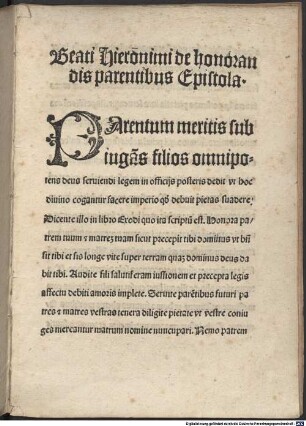 Beati Hieronimi de honoran
dis parentibus Epistola.
PArentum meritis sub
iugãs filios omnipo-
tens deus seruiendi legem in officijs posteris dedit vt hoc
diuino cogantur facere imperio qđ debuit pietas suadere,
Dicente illo in libro Exodi quo ita scriptũ est. Honora pa-
trem tuum ⁊ matrez tuam sicut precepit tibi dominus vt bñ
sit tibi et sis longe vite super terram quaz dominus deus da
bit tibi. Audite filij salutiferam iussionem et precepta legis
affectu debiti amoris implete. Seruite parẽtibus futuri pa
tres ⁊ matres vestras tenera diligite pietate vt vestre coniu
ges mereantur matrum nomine nuncupari. Nemo patrem